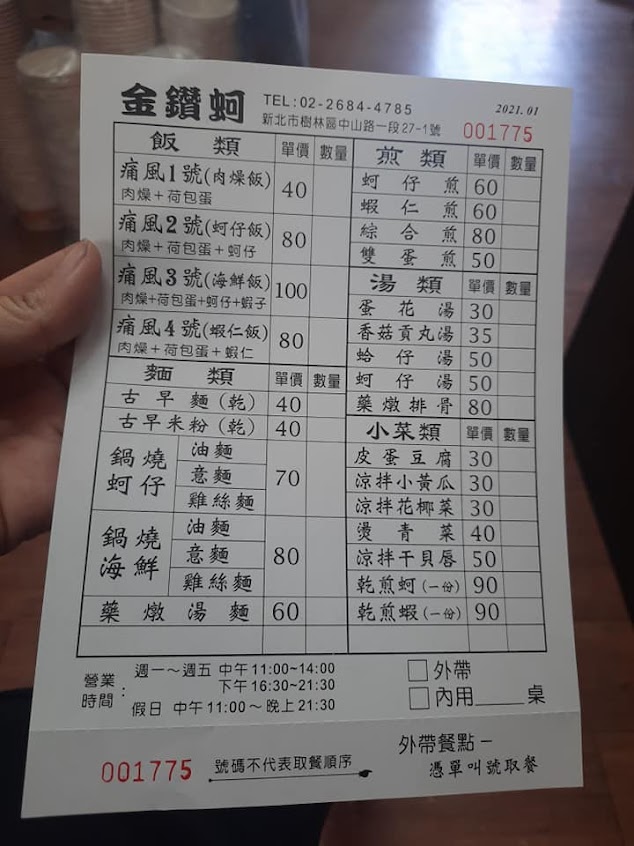 金鑽蚵 TEL:02-2684-4785 2021.01
新北市樹林區中山路一段27-1號 001775
飯類 單價 數量
痛風1號(肉燥飯) 40
肉燥+荷包蛋
痛風2號(蚵仔飯) 80
肉燥+荷包蛋+蚵仔
痛風3號(海鮮飯) 100
肉燥+荷包蛋+蚵仔+蝦子
痛風4號(蝦仁飯) 80
肉燥+荷包蛋+蝦仁
麵類 單價 數量
古早麵(乾) 40
古早米粉(乾) 40
鍋燒蚵仔 油麵 意麵 雞絲麵 70
鍋燒海鮮 油麵 意麵 雞絲麵 80
藥燉湯麵 60
煎類 單價 數量
蚵仔煎 60
蝦仁煎 60
綜合煎 80
雙蛋煎 50
湯類 單價 數量
蛋花湯 30
香菇貢丸湯 35
蛤仔湯 50
蚵仔湯 50
藥燉排骨 80
小菜類 單價 數量
皮蛋豆腐 30
涼拌小黃瓜 30
涼拌花椰菜 30
燙青菜 40
涼拌干貝唇 50
乾煎蚵(一份) 90
乾煎蝦(一份) 90
營業時間: 週一~週五 中午11:00~14:00
下午16:30~21:30
假日 中午11:00~晚上21:30
外帶
內用____桌
001775 號碼不代表取餐順序
外帶餐點－
憑單叫號取餐